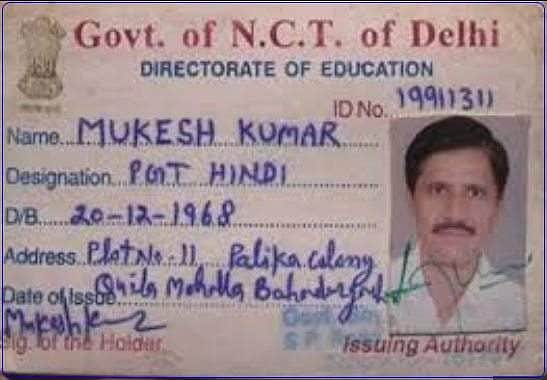 Govt. of N.C.T. of Delhi
DIRECTORATE OF EDUCATION
ID No. 19911311
Name... MUKESH KUMAR
Designation.. PGT HINDI
D/B.... 20-12-1968
Address.. Plot No-11, Palika colony
Date of Issue Quila Mohalla Bahadurgarh
Mukesh Kumar
Sig. of the Holder
Issuing Authority